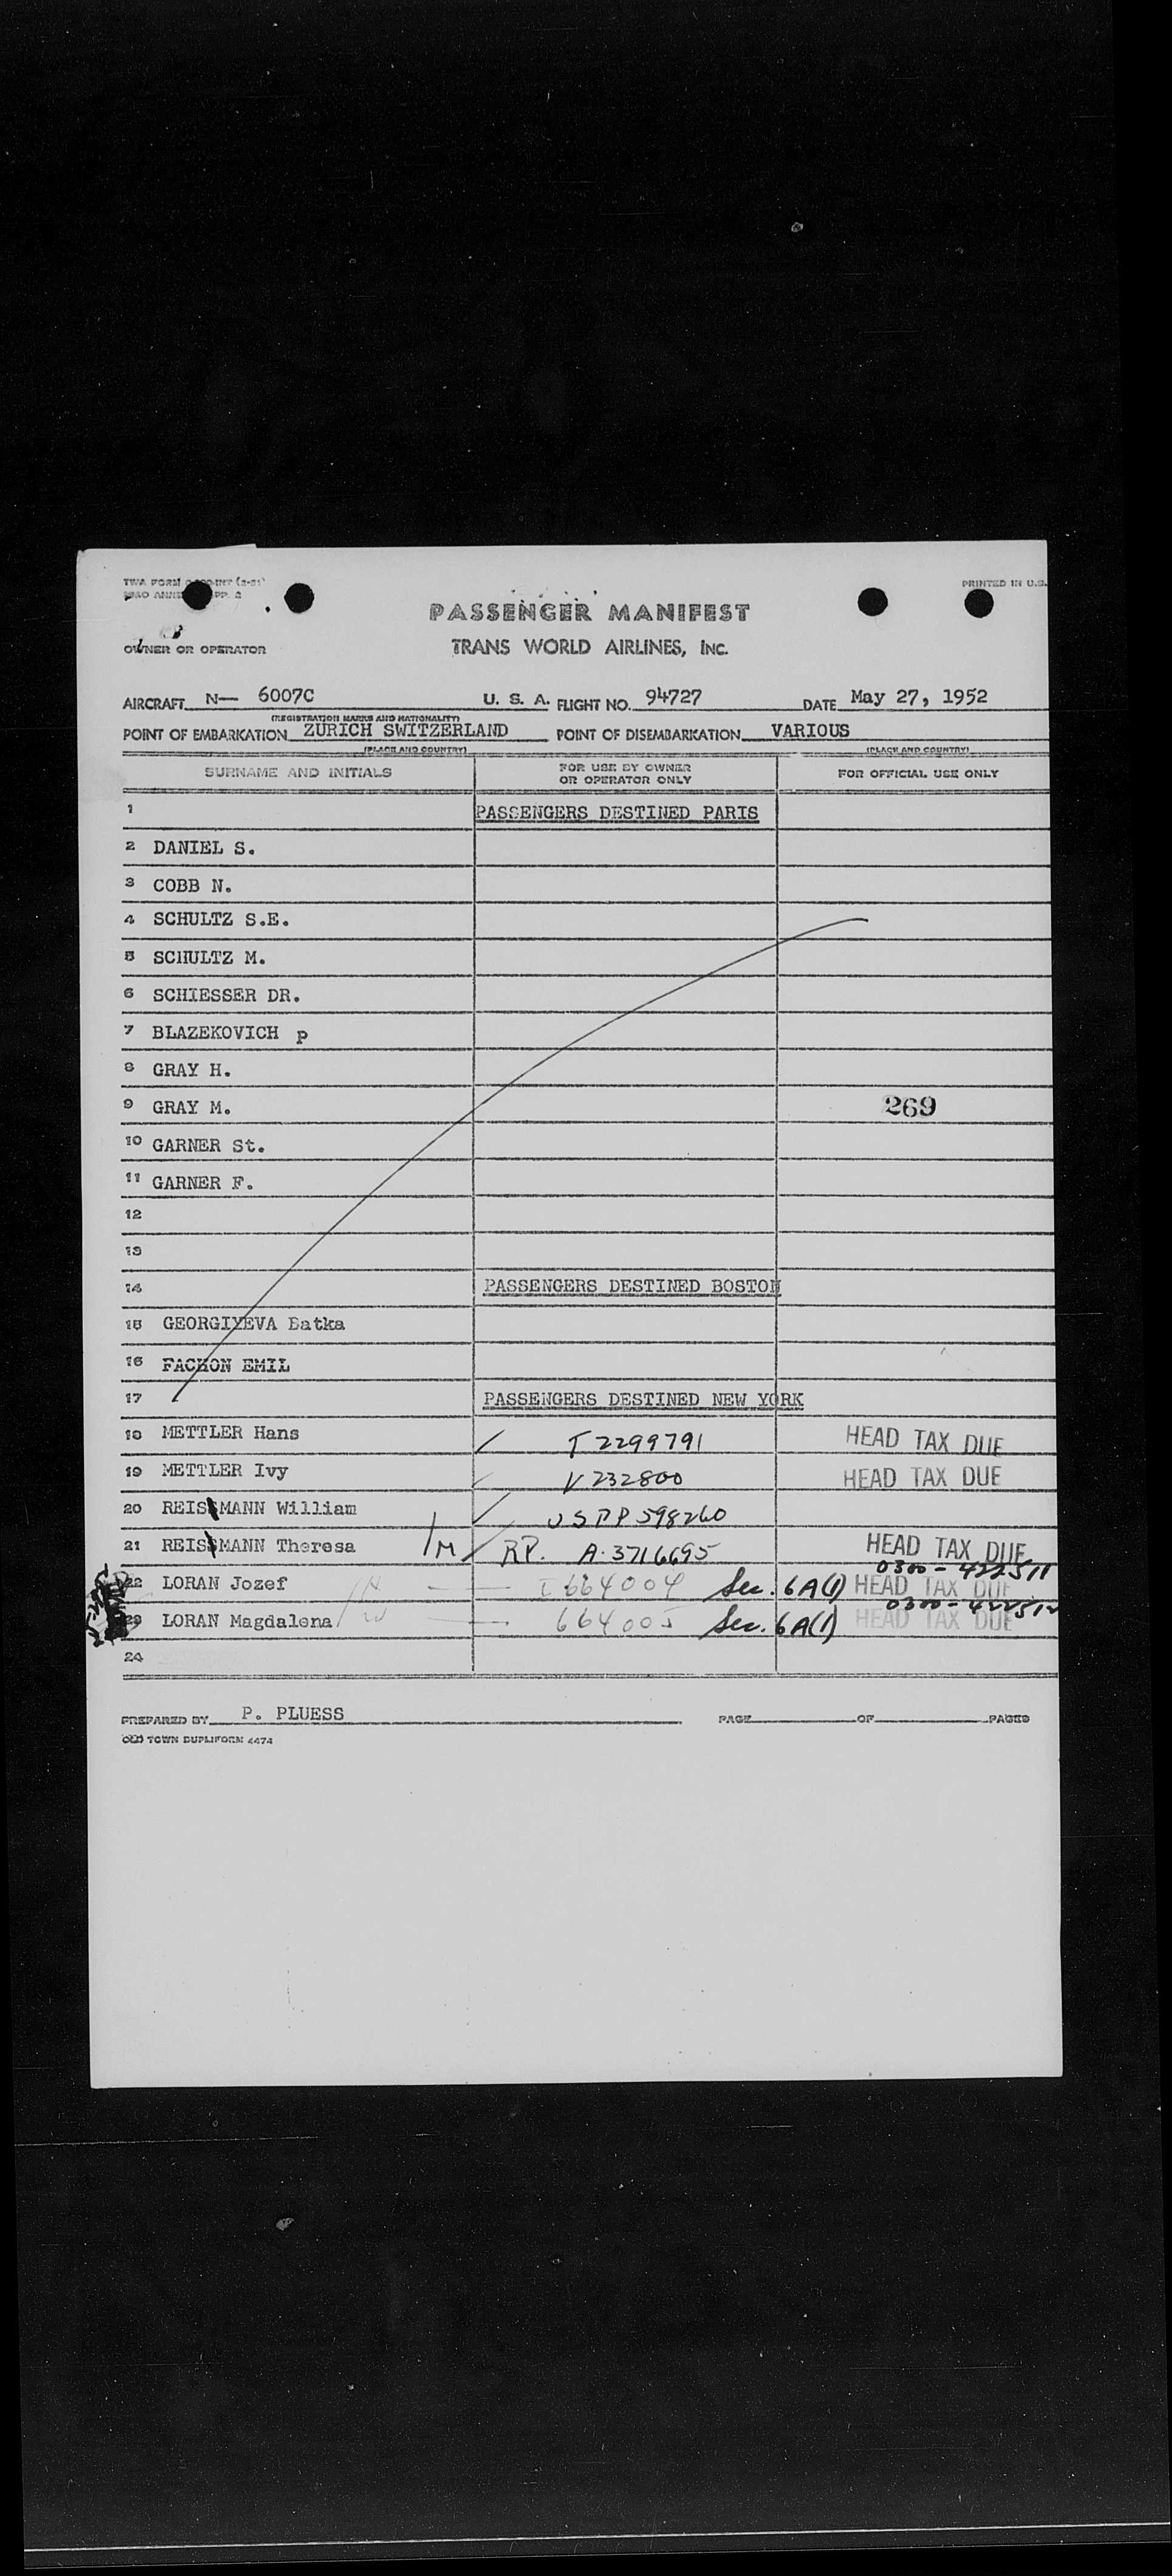 TWA FORM
PRINTED IN U.S.
PASSENGER MANIFEST
OWNER OR OPERATOR
TRANS WORLD AIRLINES, INC.
AIRCRAFT N— 6007C U. S. A. FLIGHT NO. 94727 DATE May 27, 1952
(REGISTRATION MARKS AND NATIONALITY)
POINT OF EMBARKATION ZURICH SWITZERLAND POINT OF DISEMBARKATION VARIOUS
(PLACE AND COUNTRY) (PLACE AND COUNTRY)
SURNAME AND INITIALS FOR USE BY OWNER OR OPERATOR ONLY FOR OFFICIAL USE ONLY
1 PASSENGERS DESTINED PARIS
2 DANIEL S.
3 COBB N.
4 SCHULTZ S.E.
5 SCHULTZ M.
6 SCHIESSER DR.
7 BLAZEKOVICH p
8 GRAY H.
9 GRAY M. 269
10 GARNER St.
11 GARNER F.
12
13
14 PASSENGERS DESTINED BOSTON
15 GEORGIYEVA Batka
16 FACHON EMIL
17 PASSENGERS DESTINED NEW YORK
18 METTLER Hans T2299791 HEAD TAX DUE
19 METTLER Ivy V232800 HEAD TAX DUE
20 REISSMANN William USPP598260
21 REISSMANN Theresa M RP. A-3716695 HEAD TAX DUE
0300-422511
22 LORAN Jozef I664004 Sec. 6A(1) HEAD TAX DUE
0300-422512
23 LORAN Magdalena 664005 Sec. 6A(1) HEAD TAX DUE
24
PREPARED BY P. PLUESS PAGE OF PAGES
OLD TOWN DUPLIFORM 4474